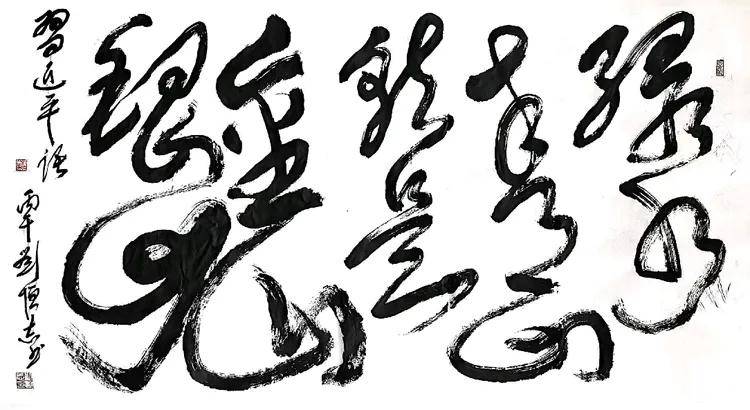 绿水
青山
就是
金山
银山
习近平语
丙午刘恒志书